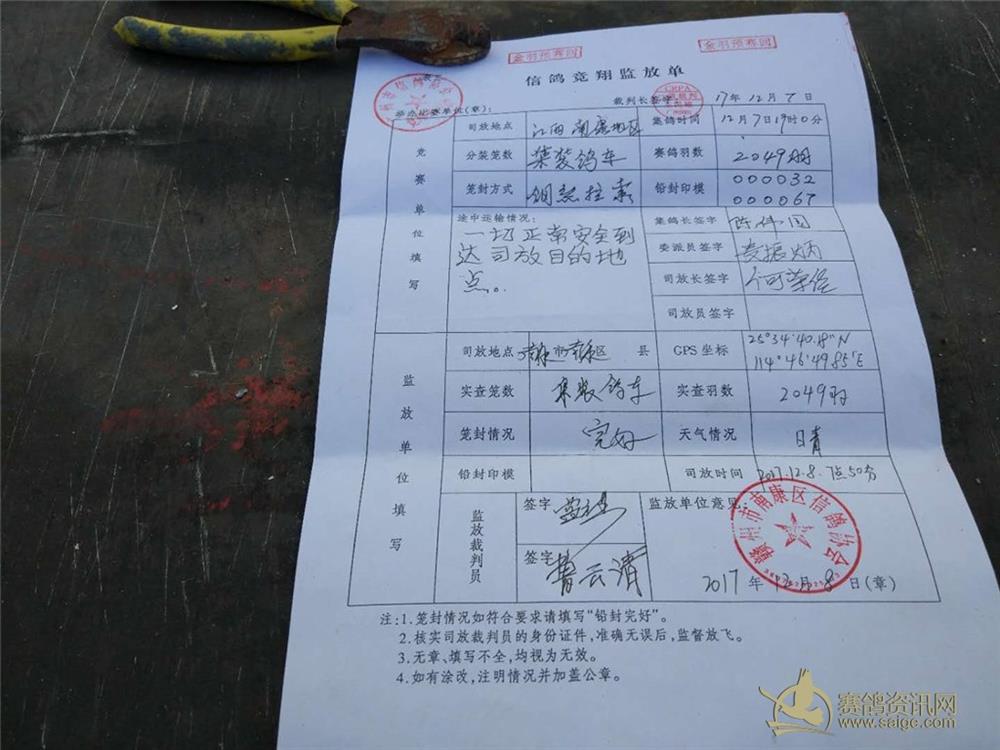 金羽预赛园
金羽预赛园
信鸽竞翔监放单
举办比赛单位(章): 裁判长签字 17年12月7日
竞赛单位填写
司放地点 江西南康地区 集鸽时间 12月7日19时0分
分装笼数 集装鸽车 赛鸽羽数 2049羽
笼封方式 钢丝拉索 铅封印模 000032
000067
途中运输情况: 集鸽长签字 陈伟国
一切正常安全到
达司放目的地
点。
委派员签字 振炳
司放长签字 何荣
司放员签字
监放单位填写
司放地点 市南康区 县 GPS坐标 25°34'40.18"N
114°46'49.85'E
实查笼数 集装鸽车 实查羽数 2049羽
笼封情况 完好 天气情况 日青
铅封印模 司放时间 2017.12.8.7点50分
监放裁判员
签字
签字 曹云清
监放单位意见:
赣州市南康区信鸽协会
2017年12月8日(章)
注:1.笼封情况如符合要求请填写“铅封完好”。
2.核实司放裁判员的身份证件,准确无误后,监督放飞。
3.无章、填写不全,均视为无效。
4.如有涂改,注明情况并加盖公章。
赛鸽资讯网
www.saige.com